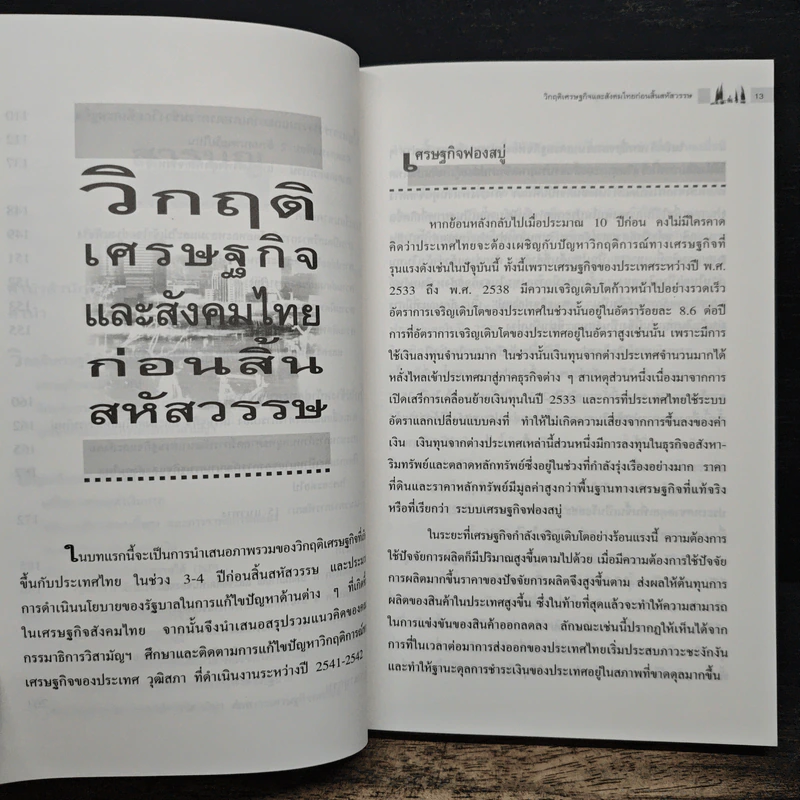 วิกฤติ
เศรษฐกิจ
และสังคมไทย
ก่อนสิ้น
สหัสวรรษ
ในบทแรกนี้จะเป็นการนำเสนอภาพรวมของวิกฤติเศรษฐกิจที่
ขึ้นกับประเทศไทย ในช่วง 3-4 ปีก่อนสิ้นสหัสวรรษ และ
การดำเนินนโยบายของรัฐบาลในการแก้ไขปัญหาด้านต่าง ๆ ที่
ในเศรษฐกิจสังคมไทย จากนั้นจึงนำเสนอสรุปรวมแนวคิดของ
กรรมาธิการวิสามัญฯ ศึกษาและติดตามการแก้ไขปัญหาวิกฤติการณ์
เศรษฐกิจของประเทศ วุฒิสภา ที่ดำเนินงานระหว่างปี 2541-2542
วิกฤติเศรษฐกิจและสังคมไทยก่อนสิ้นสหัสวรรษ 13
เศรษฐกิจฟองสบู่
หากย้อนหลังกลับไปเมื่อประมาณ 10 ปีก่อน คงไม่มีใครคาด
คิดว่าประเทศไทยจะต้องเผชิญกับปัญหาวิกฤติการณ์ทางเศรษฐกิจที่
รุนแรงดังเช่นในปัจุบันนี้ ทั้งนี้เพราะเศรษฐกิจของประเทศระหว่างปี พ.ศ.
2533 ถึง พ.ศ. 2538 มีความเจริญเติบโตก้าวหน้าไปอย่างรวดเร็ว
อัตราการเจริญเติบโตของประเทศในช่วงนั้นอยู่ในอัตราร้อยละ 8.6 ต่อปี
การที่อัตราการเจริญเติบโตของประเทศอยู่ในอัตราสูงเช่นนั้น เพราะมีการ
ใช้เงินลงทุนจำนวนมาก ในช่วงนั้นเงินทุนจากต่างประเทศจำนวนมากได้
หลั่งไหลเข้าประเทศมาสู่ภาคธุรกิจต่าง ๆ สาเหตุส่วนหนึ่งเนื่องมาจากการ
เปิดเสรีการเคลื่อนย้ายเงินทุนในปี 2533 และการที่ประเทศไทยใช้ระบบ
อัตราแลกเปลี่ยนแบบคงที่ ทำให้ไม่เกิดความเสี่ยงจากการขึ้นลงของค่า
เงิน เงินทุนจากต่างประเทศเหล่านี้ส่วนหนึ่งมีการลงทุนในธุรกิจอสังหา-
ริมทรัพย์และตลาดหลักทรัพย์ซึ่งอยู่ในช่วงที่กำลังรุ่งเรืองอย่างมาก ราคา
ที่ดินและราคาหลักทรัพย์มีมูลค่าสูงกว่าพื้นฐานทางเศรษฐกิจที่แท้จริง
หรือที่เรียกว่า ระบบเศรษฐกิจฟองสบู่
ในระยะที่เศรษฐกิจกำลังเจริญเติบโตอย่างร้อนแรงนี้ ความต้องการ
ใช้ปัจจัยการผลิตก็มีปริมาณสูงขึ้นตามไปด้วย เมื่อมีความต้องการใช้ปัจจัย
การผลิตมากขึ้นราคาของปัจจัยการผลิตจึงสูงขึ้นตาม ส่งผลให้ต้นทุนการ
ผลิตของสินค้าในประเทศสูงขึ้น ซึ่งในท้ายที่สุดแล้วจะทำให้ความสามารถ
ในการแข่งขันของสินค้าออกลดลง ลักษณะเช่นนี้ปรากฏให้เห็นได้จาก
การที่ในเวลาต่อมาการส่งออกของประเทศไทยเริ่มประสบภาวะชะงักงัน
และทำให้ฐานะดุลการชำระเงินของประเทศอยู่ในสภาพที่ขาดดุลมากขึ้น